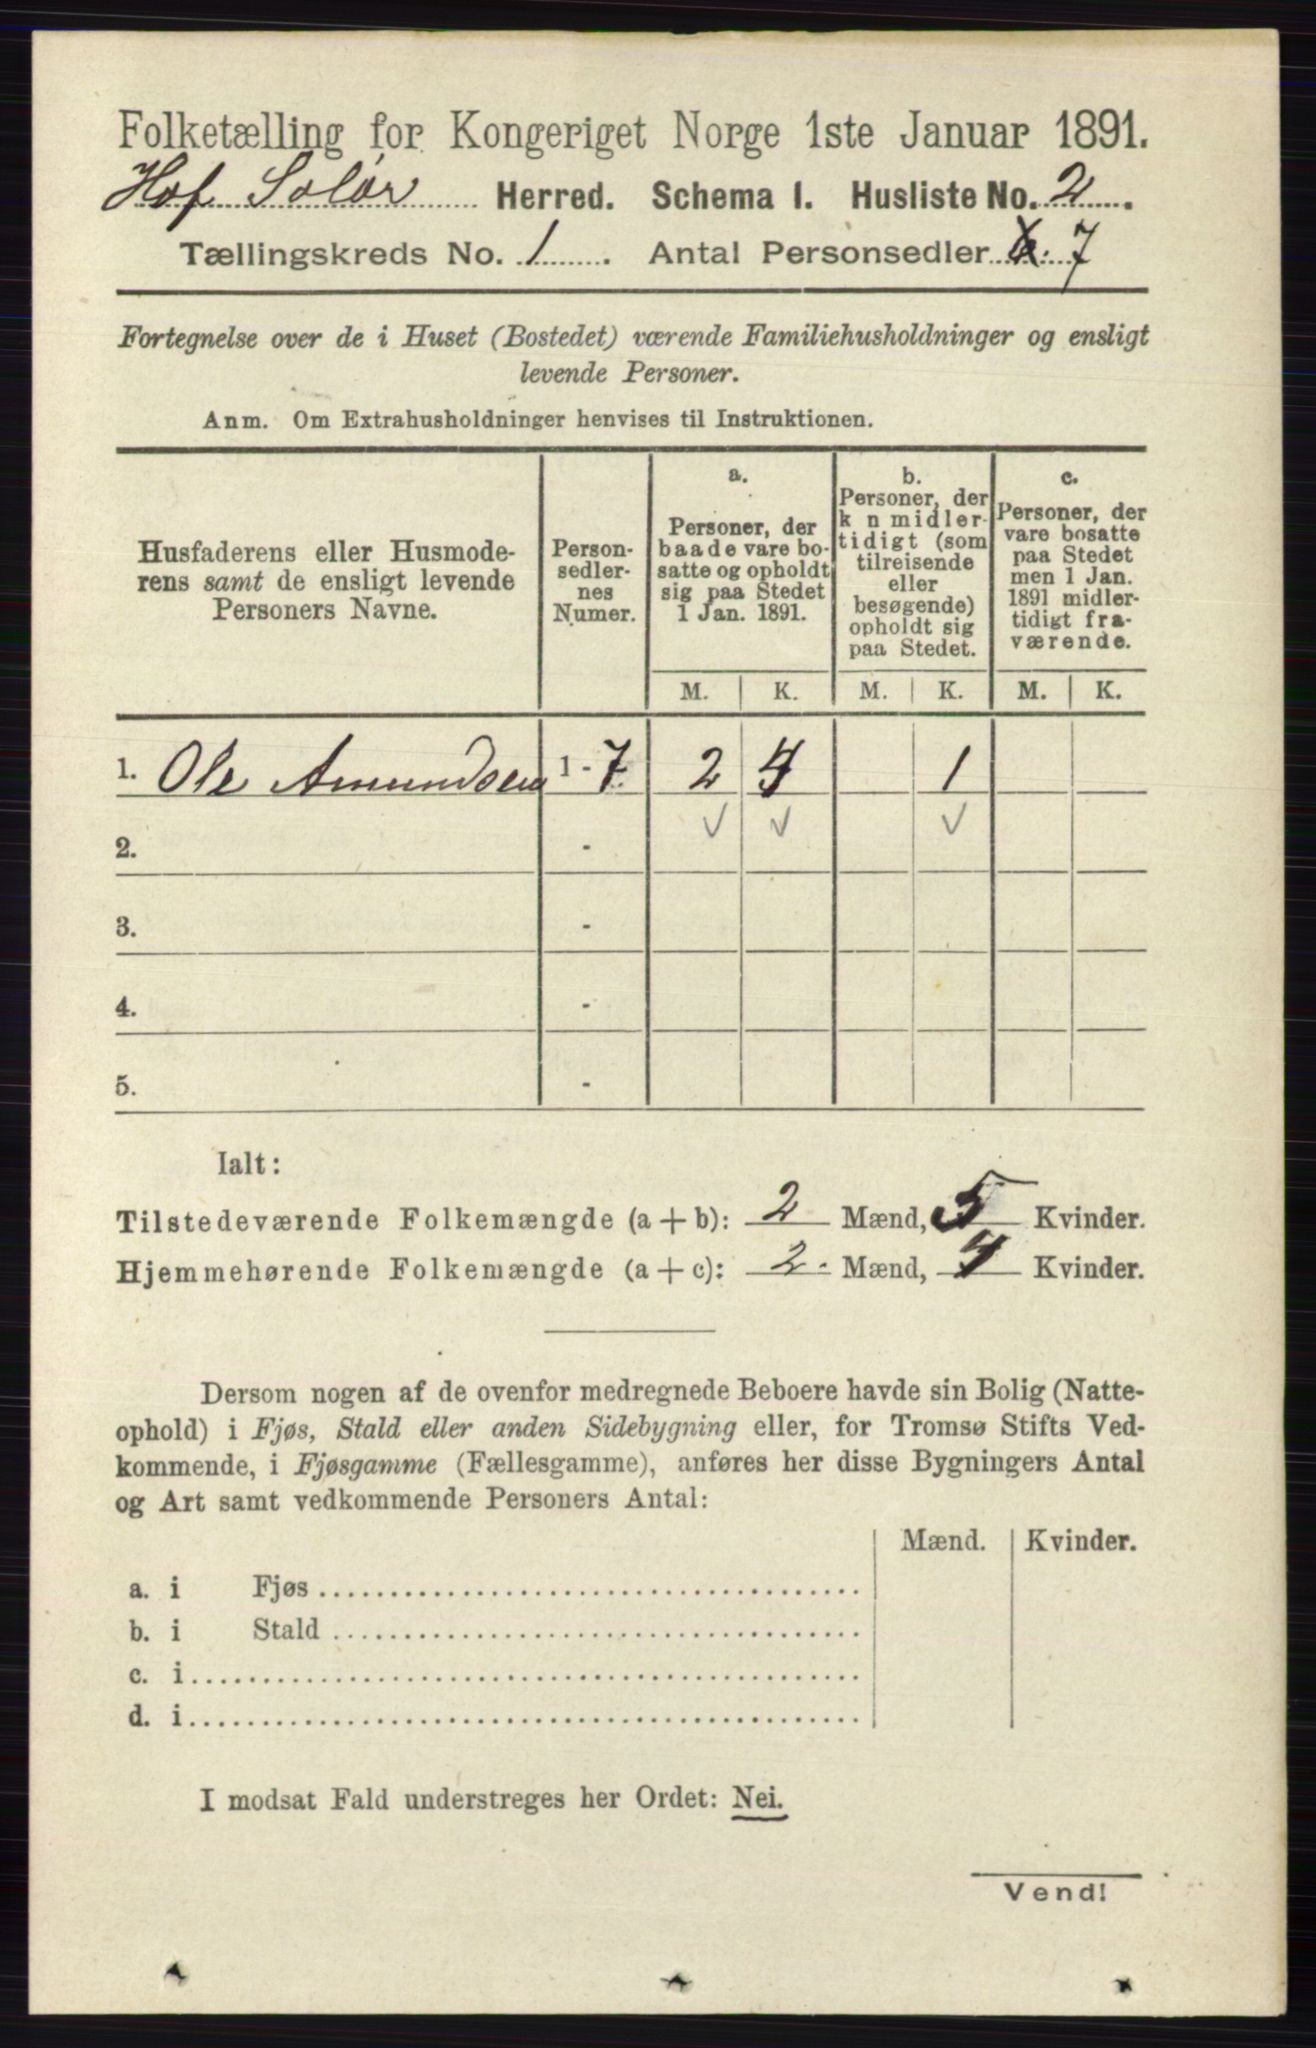 Folketælling for Kongeriget Norge 1ste Januar 1891.
Hof Solør Herred. Schema I. Husliste No. 2.
Tællingskreds No. 1. Antal Personsedler 7
Fortegnelse over de i Huset (Bostedet) værende Familiehusholdninger og ensligt
levende Personer.
Anm. Om Extrahusholdninger henvises til Instruktionen.
Husfaderens eller Husmode-
rens samt de ensligt levende
Personers Navne.
Person-
sedler-
nes
Numer.
a.
Personer, der
baade vare bo-
satte og opholdt
sig paa Stedet
1 Jan. 1891.
b.
Personer, der
k n midler-
tidigt (som
tilreisende
eller
besøgende)
opholdt sig
paa Stedet.
c.
Personer, der
vare bosatte
paa Stedet
men 1 Jan.
1891 midler-
tidigt fra-
værende.
M. K. M. K. M. K.
1. Ole Amundsen 1 - 7 2 4 1
2. -
3. -
4. -
5. -
Ialt:
Tilstedeværende Folkemængde (a + b): 2 Mænd, 5 Kvinder.
Hjemmehørende Folkemængde (a + c): 2. Mænd, 4 Kvinder.
Dersom nogen af de ovenfor medregnede Beboere havde sin Bolig (Natte-
ophold) i Fjøs, Stald eller anden Sidebygning eller, for Tromsø Stifts Ved-
kommende, i Fjøsgamme (Fællesgamme), anføres her disse Bygningers Antal
og Art samt vedkommende Personers Antal:
Mænd. Kvinder.
a. i Fjøs
b. i Stald
c. i
d. i
I modsat Fald understreges her Ordet: Nei.
Vend!